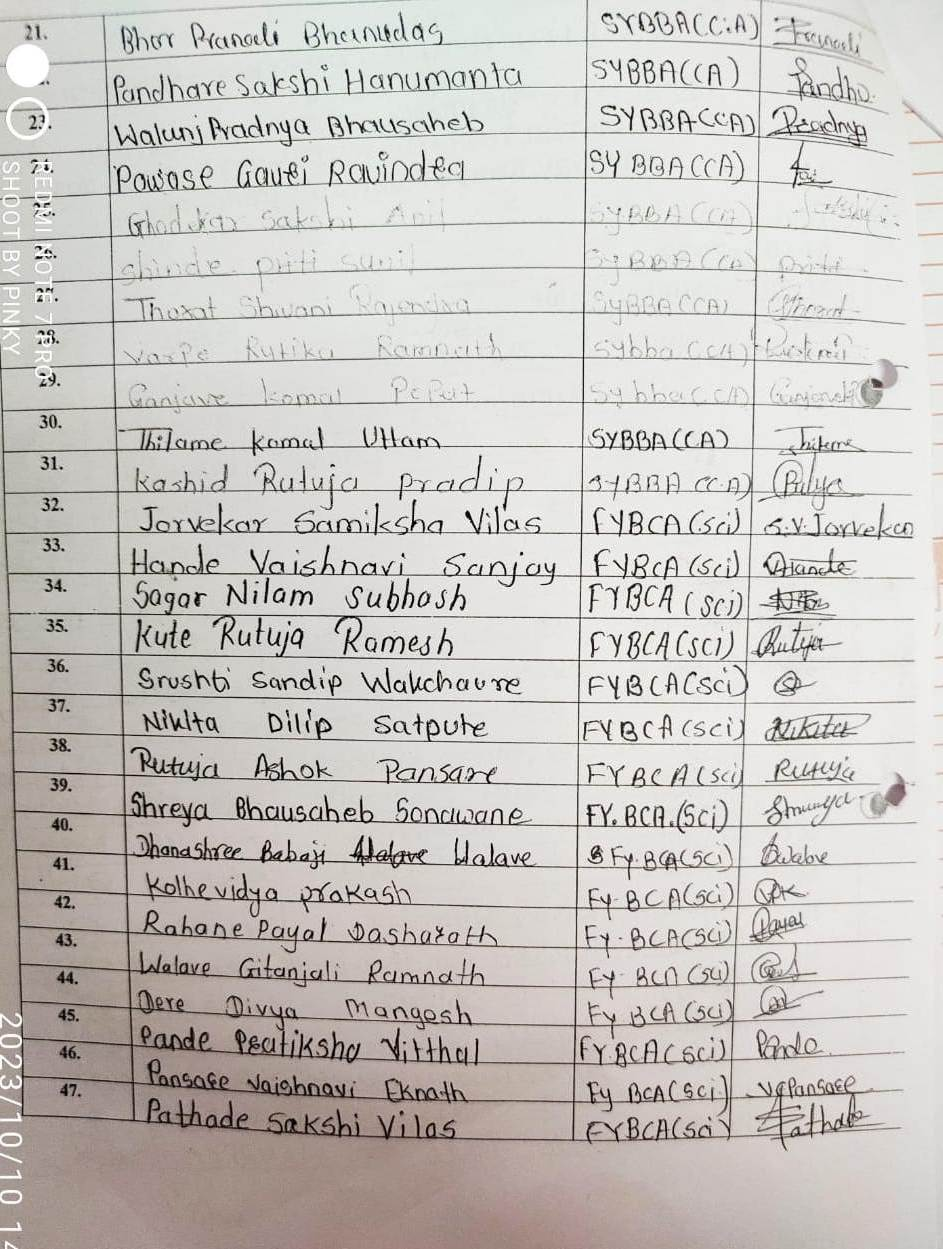 21. Bhor Pranali Bhanudas SYBBA(C.A) Pranali
Pandhare Sakshi Hanumanta SYBBA(CA) Pandha.
23. Walunj Pradnya Bhausaheb SYBBA(CA) Pradnya
24. Pawase Gauri Ravindra SY BBA(CA)
25. Sakshi Anil SYBBA(CA) Sakshi
26. shinde priti sunil SyBBA(CA) priti
27. Thorat Shivani Rajendra SyBBA(CA) Thorat
28. Varpe Rutika Ramnath sybba (CA)
29. Ganjave komal Popat Sybba(CA) Ganjave
30. Thilame Komal Uttam SYBBA(CA)
31. Kashid Rutuja pradip SYBBA (C.A)
32. Jorvekar Samiksha Vilas FYBCA(sci) S.V.Jorvekar
33. Hande Vaishnavi Sanjay FYBCA(sci) Hande
34. Sagar Nilam Subhash FYBCA(sci)
35. Kute Rutuja Ramesh FYBCA(sci) Rutuja
36. Srushti Sandip Wakchaure FYBCA(sci)
37. Nikita Dilip Satpute FYBCA(sci) Nikita
38. Rutuja Ashok Pansare FYBCA(sci) Rutuja
39. Shreya Bhausaheb Sonawane FY.BCA.(Sci)
40. Dhanashree Babaji Walave Fy.BCA(sci)
41. Kolhe vidya prakash Fy.BCA(sci)
42. Rahane Payal Dasharath Fy.BCA(sci) Payal
43. Walave Gitanjali Ramnath Fy BCA (sci)
44. Dere Divya Mangesh Fy BCA (sci)
45. Pande Pratiksha Vitthal FY.BCA(sci) Pande
46. Pansare Vaishnavi Eknath Fy BCA(sci) VEPansare
47. Pathade Sakshi Vilas FYBCA(sci) Pathade
REDMI NOTE 7 PRO
SHOOT BY PINKY
2023/10/10 14